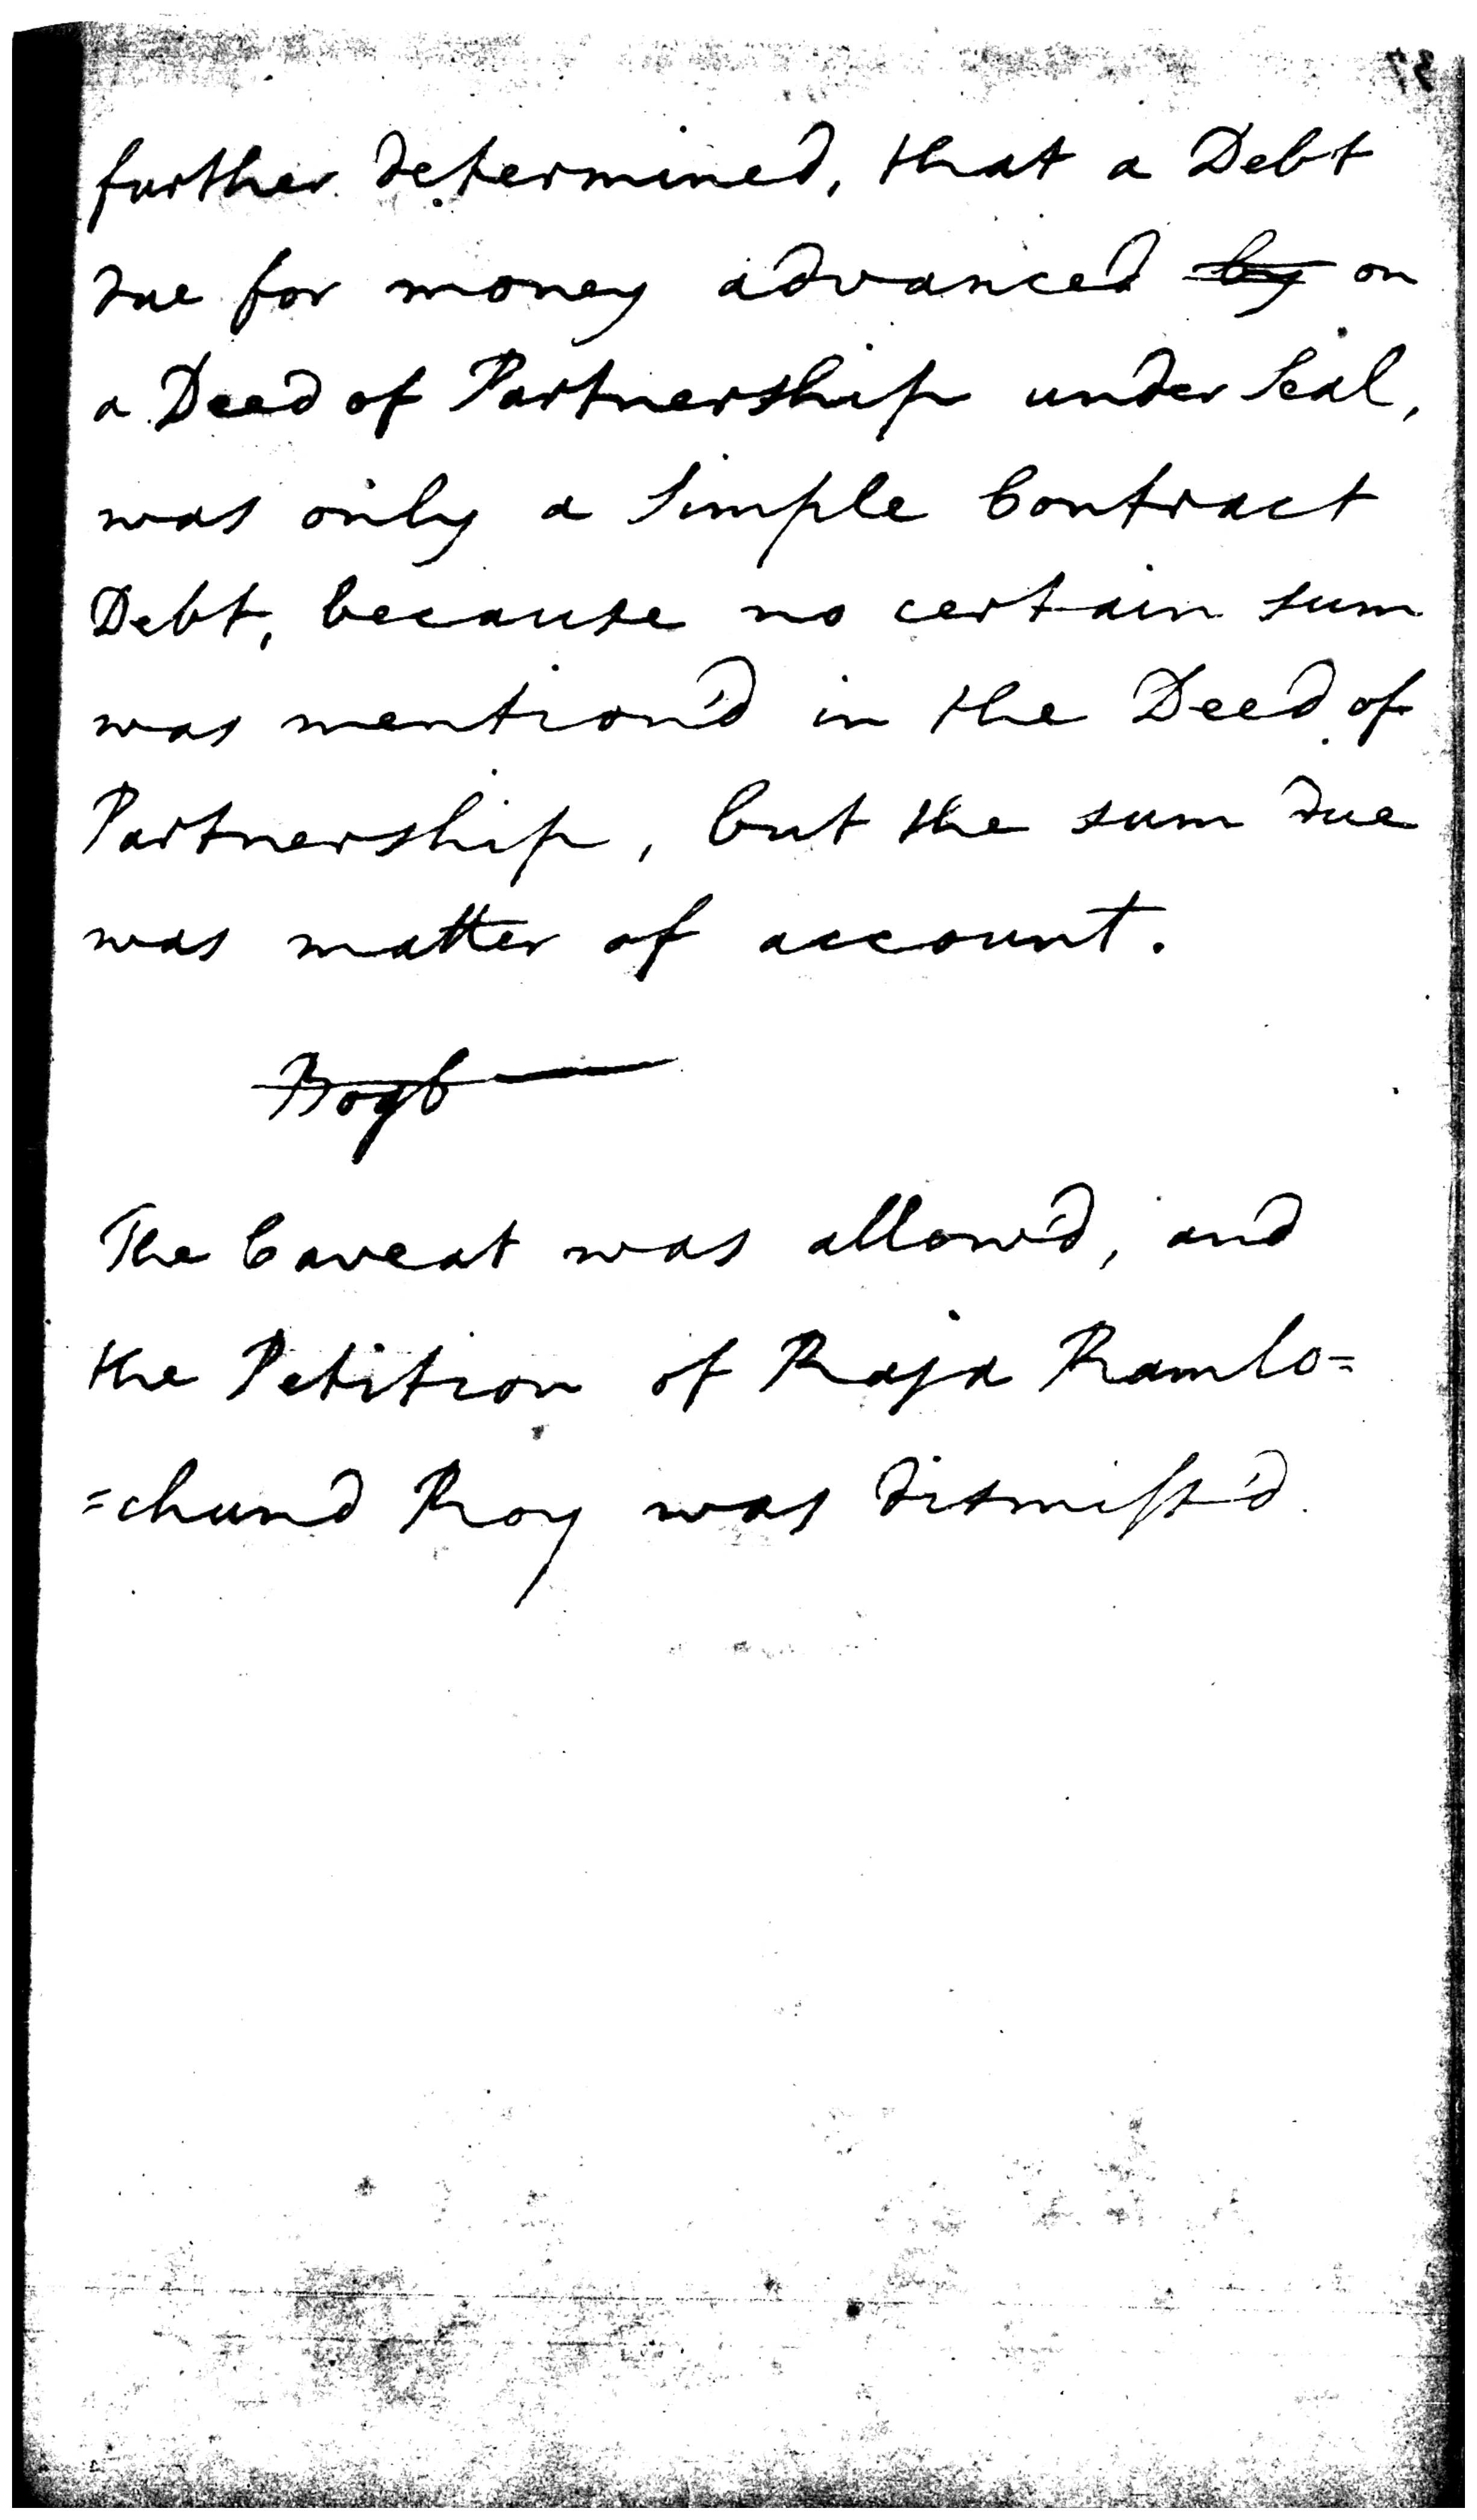 further determined, that a Debt
due for money advanced by on
a Deed of Partnership under Seal,
was only a Simple Contract
Debt, because no certain sum
was mention'd in the Deed of
Partnership, but the sum due
was matter of account.
The Caveat was allow'd, and
the Petition of Raja Ramlo=
=chund Roy was dismiss'd.